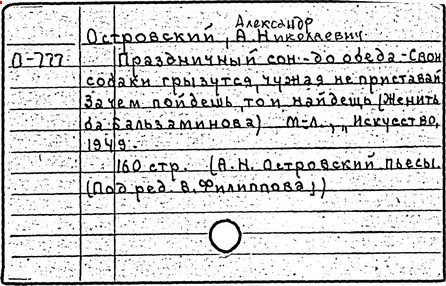 Александр
Островский, А. Николаевич
П-777. Праздничный сон - до обеда - Свои
собаки грызутся, чужая не приставай
Зачем пойдешь, то и найдешь (Женить
ба Бальзаминова) М-Л., „Искусство,
1949.
160 стр. (А.Н. Островский пьесы.
(Под ред. В. Филиппова,)